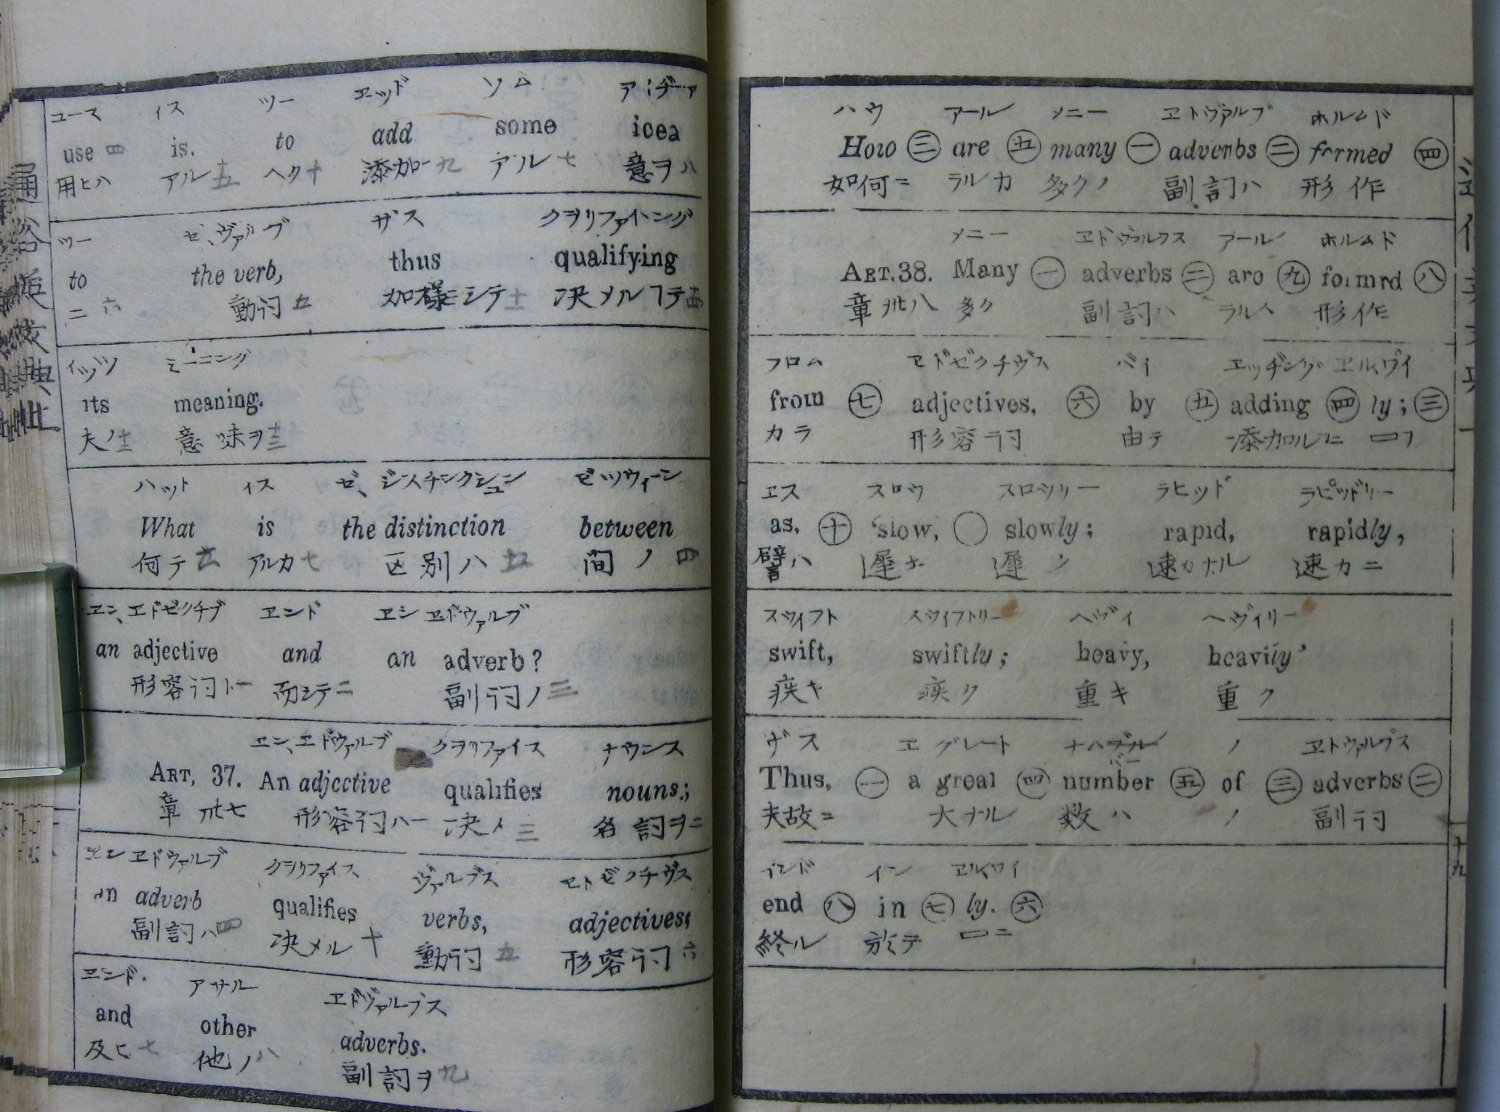 ユース イス ツー エッド ソム アイヂーア
use 四 is. to add some icea
用ヒハ アル 五 ヘク 十 添加 九 アル 七 意ヲ 八
ツー ゼ、ヴァルブ ザス クヲリファイイング
to the verb, thus qualifying
ニ 六 動詞 五 如様ニシテ 十一 決メルフテ
イッツ ミーニング
its meaning.
夫ノ 十二 意味ヲ 十三
ハット イス ゼ、ジスチンクション ビツウィーン
What is the distinction between
何テ 六 アルカ 七 区別ハ 五 間ノ 四
エン、エドゼクチブ エンド エン エドヴァルブ
an adjective and an adverb?
形容詞ト 一 而シテ 二 副詞ノ 三
エン、エドヴァルブ クヲリファイス ナウンス
ART, 37. An adjective qualifies nouns.;
章 卅七 形容詞ハ 一 決メ 三 名詞ヲ 二
エン エドヴァルブ クヲリファイス ヴァルブス エドゼクチヴス
an adverb qualifies verbs, adjectives;
副詞ハ 四 決メル 十 動詞 五 形容詞 六
エンド. アザル エドヴァルブス
and other adverbs.
及ヒ 七 他ノ 八 副詞ヲ 九
ハウ アール メニー エドヴァルブ ホルムド
How 三 are 五 many 一 adverbs 二 formed 四
如何ニ ラルカ 多クノ 副詞ハ 形作
メニー エドヴァルブス アール ホルムド
ART.38. Many 一 adverbs 二 are 九 formed 八
章 卅八 多ク 副詞ハ ラルヽ 形作
フロム エドゼクチヴス バイ エッヂング エルヴイ
from 七 adjectives, 六 by 五 adding 四 ly; 三
カラ 形容詞 由テ 添加ルニ
エス スロウ スロウリー ラピッド ラピッドリー
as, 十 slow, slowly; rapid, rapidly,
譬ハ 遅キ 遅ク 速カナル 速カニ
スウイフト スウイフトリー ヘヴイ ヘヴイリー
swift, swiftly; heavy, heavily'
疾キ 疾ク 重キ 重ク
ザス エ グレート ナンバー ノ エドヴァルブス
Thus, 一 a great 四 number 五 of 三 adverbs 二
夫故ニ 大ナル 数ハ ノ 副詞
エンド イン エルワイ
end 八 in 七 ly. 六
終ル 於テ
十九